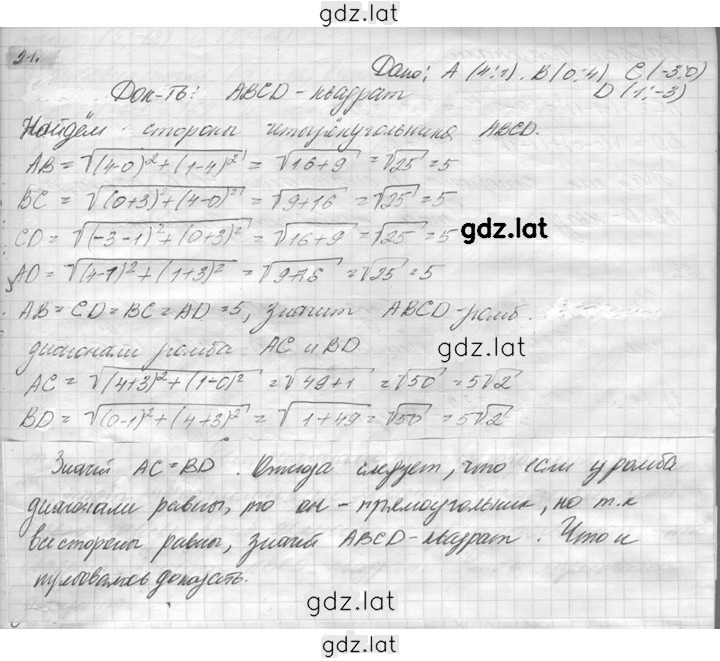 gdz.lat
21.
Дано: A (4;1), B (0;4), C (-3;0)
D (1;-3)
Док-ть: ABCD - квадрат
Найдём стороны четырёхугольника ABCD.
AB = √(4-0)²+(1-4)² = √16+9 = √25 = 5
BC = √(0+3)²+(4-0)² = √9+16 = √25 = 5
CD = √(-3-1)²+(0+3)² = √16+9 = √25 = 5
gdz.lat
AD = √(4-1)²+(1+3)² = √9+16 = √25 = 5
AB = CD = BC = AD = 5, значит ABCD - ромб.
диагонали ромба AC и BD
gdz.lat
AC = √(4+3)²+(1-0)² = √49+1 = √50 = 5√2
BD = √(0-1)²+(4+3)² = √1+49 = √50 = 5√2
Значит AC = BD. Отсюда следует, что если у ромба
диагонали равны, то он - прямоугольник, но т.к
все стороны равны, значит ABCD - квадрат. Что и
требовалось доказать.
gdz.lat
gdz.lat